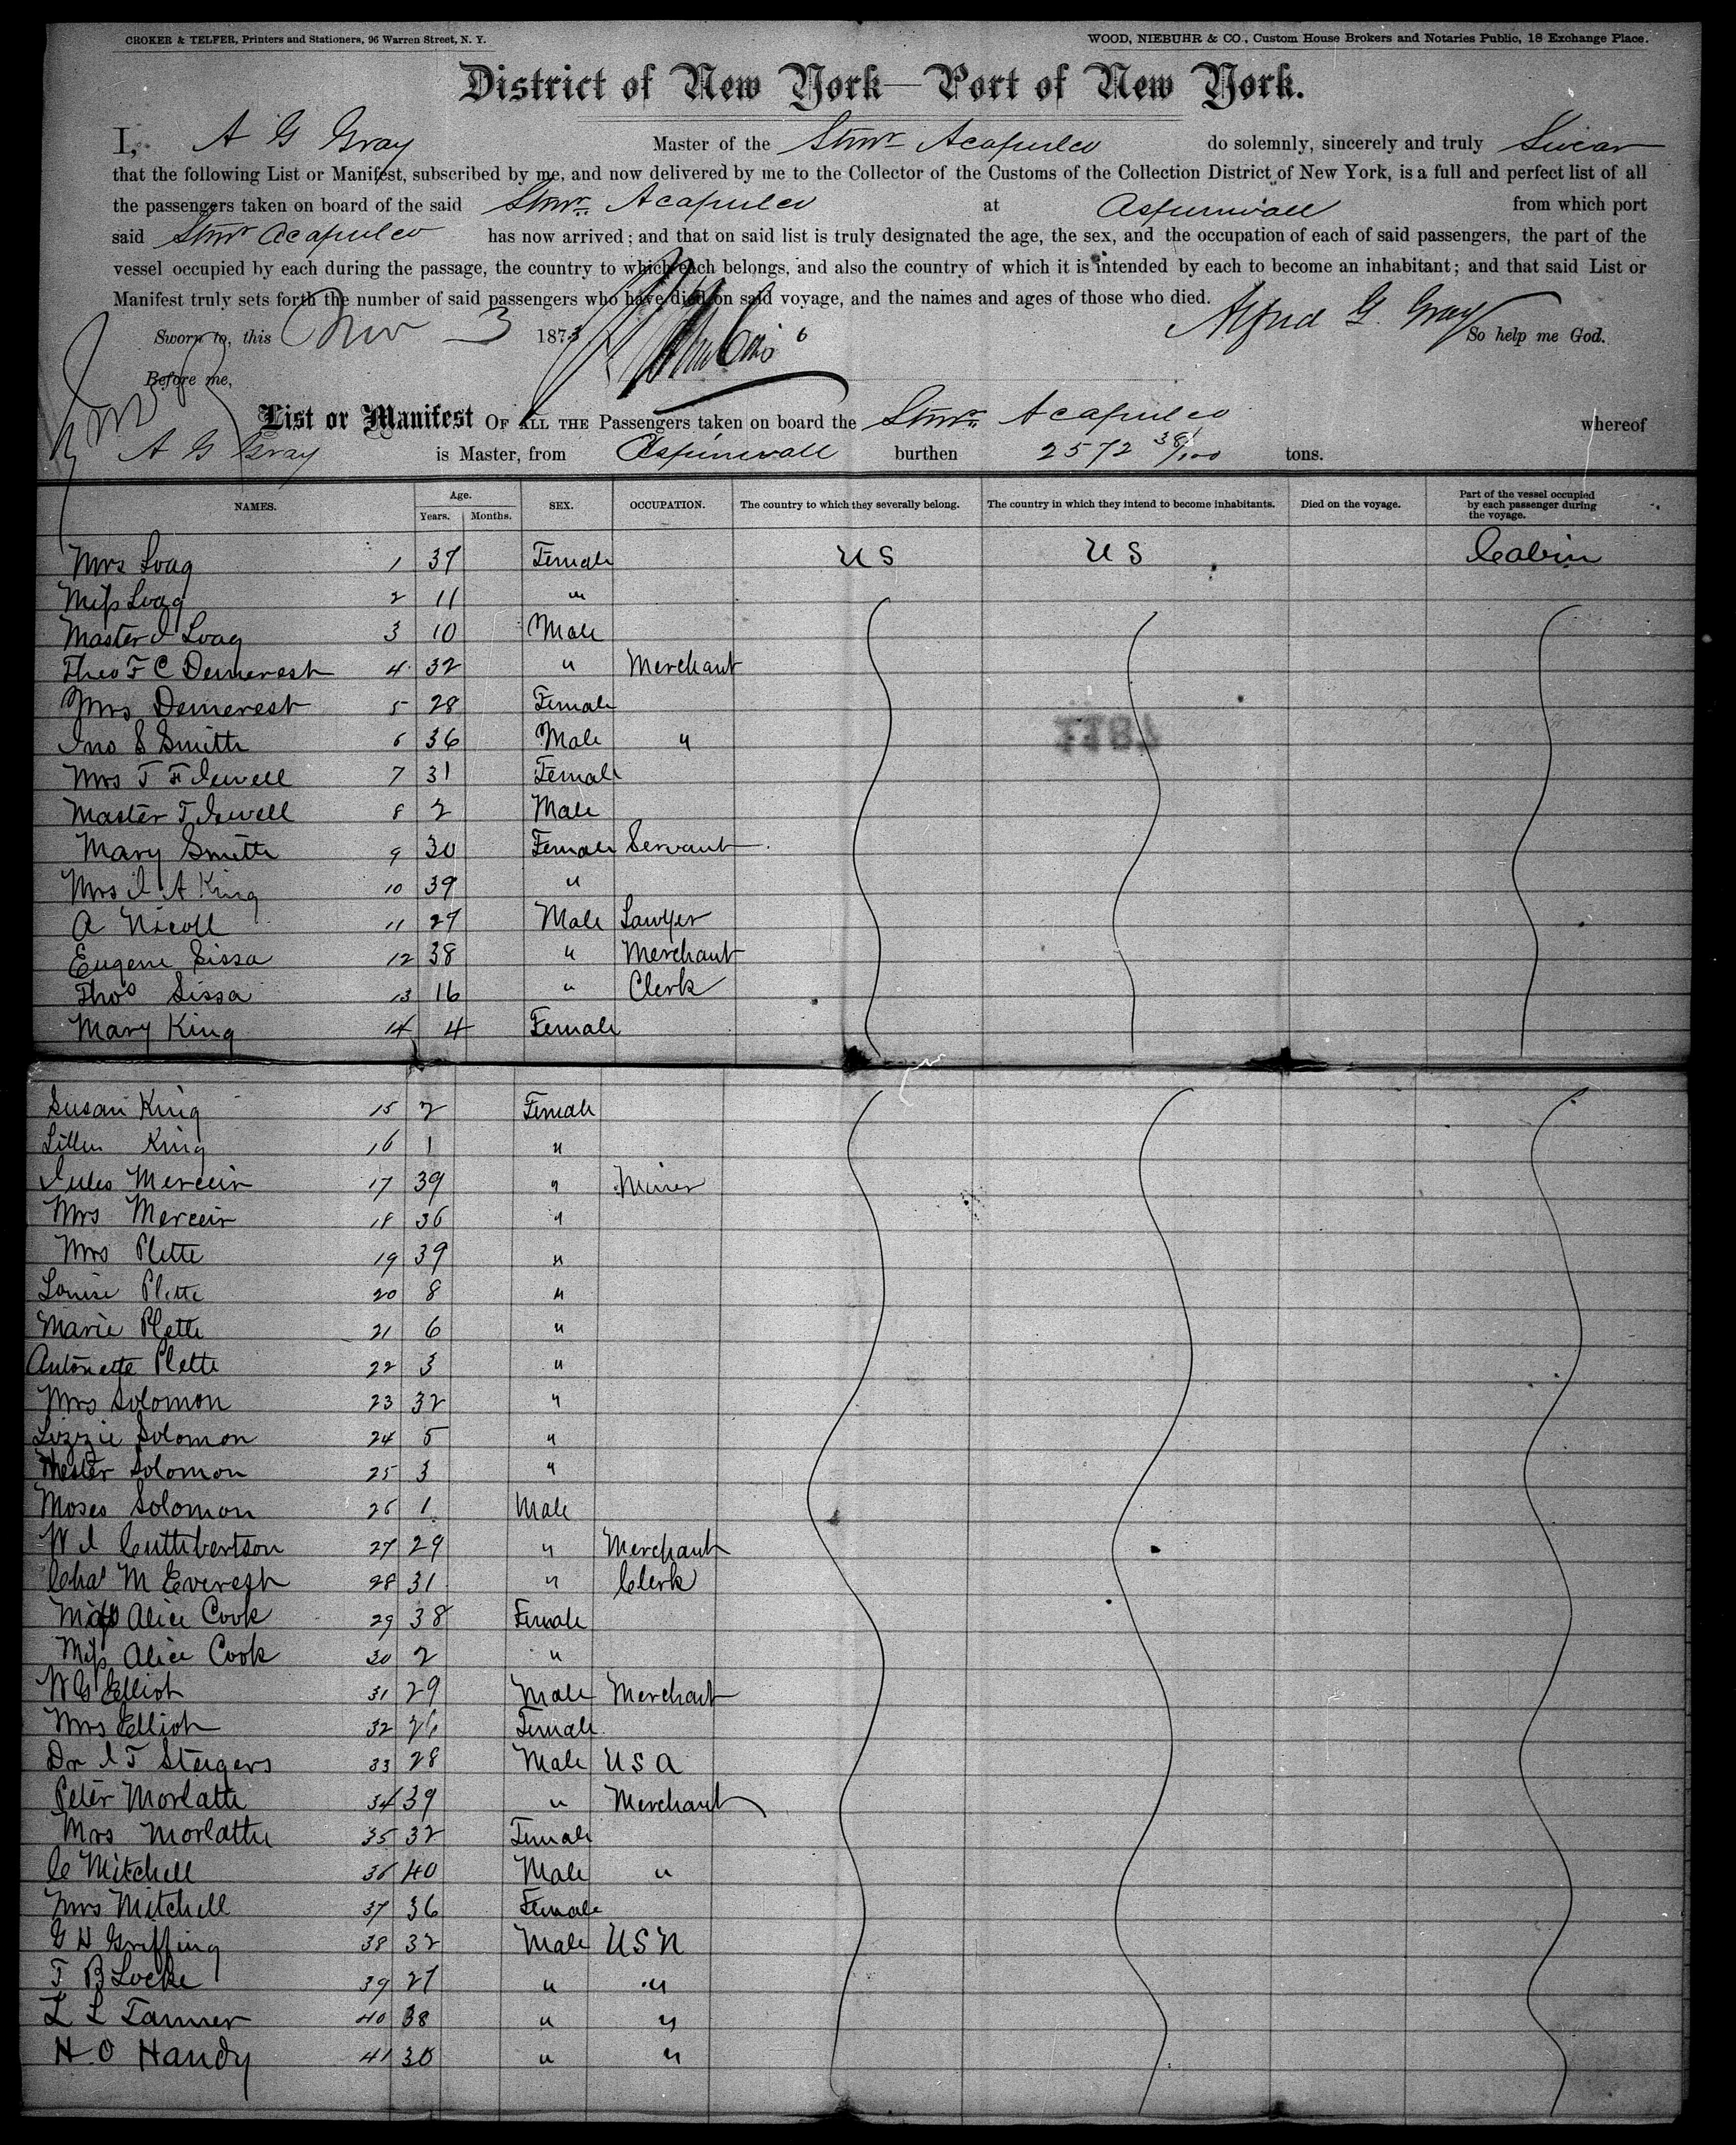 CROKER & TELFER, Printers and Stationers, 96 Warren Street, N. Y.
WOOD, NIEBUHR & CO., Custom House Brokers and Notaries Public, 18 Exchange Place.
District of New York—Port of New York.
I, A G Gray Master of the Stmr Acapulco do solemnly, sincerely and truly Swear
that the following List or Manifest, subscribed by me, and now delivered by me to the Collector of the Customs of the Collection District of New York, is a full and perfect list of all
the passengers taken on board of the said Stmr. Acapulco at Aspinwall from which port
said Stmr Acapulco has now arrived; and that on said list is truly designated the age, the sex, and the occupation of each of said passengers, the part of the
vessel occupied by each during the passage, the country to which each belongs, and also the country of which it is intended by each to become an inhabitant; and that said List or
Manifest truly sets forth the number of said passengers who have died on said voyage, and the names and ages of those who died.
Sworn to, this Nov 3 1873 Alfred G. Gray So help me God.
Before me,
List or Manifest OF ALL THE Passengers taken on board the Stmr. Acapulco whereof
A G Gray is Master, from Aspinwall burthen 2572 38/100 tons.
NAMES. Age. Years. Months. SEX. OCCUPATION. The country to which they severally belong. The country in which they intend to become inhabitants. Died on the voyage. Part of the vessel occupied by each passenger during the voyage.
Mrs Loag 1 37 Female US US Cabin
Miss Loag 2 11 "
Master J Loag 3 10 Male
Theo F C Demerest 4 32 " Merchant
Mrs Demerest 5 28 Female
Jno S Smith 6 36 Male "
Mrs T F Jewell 7 31 Female
Master T Jewell 8 2 Male
Mary Smith 9 30 Female Servant
Mrs J A King 10 39 "
A Nicoll 11 27 Male Lawyer
Eugene Sissa 12 38 " Merchant
Thos Sissa 13 16 " Clerk
Mary King 14 4 Female
Susan King 15 2 Female
King 16 1 "
Jules Merceir 17 39 " Miner
Mrs Merceir 18 36 "
Mrs Plette 19 39 "
Louise Plette 20 8 "
Marie Plette 21 6 "
Antonette Plette 22 3 "
Mrs Solomon 23 32 "
Lizzie Solomon 24 5 "
Hester Solomon 25 3 "
Moses Solomon 26 1 Male
W J Cuthbertson 27 29 " Merchant
Chas M Everest 28 31 " Clerk
Alice Cook 29 38 Female
Miss Alice Cook 30 2 "
W G Elliot 31 29 Male Merchant
Mrs Elliot 32 26 Female
Dr J T Steigers 33 28 Male USA
Peter Morlatte 34 39 " Merchant
Mrs Morlatte 35 32 Female
C Mitchell 36 40 Male "
Mrs Mitchell 37 36 Female
G H Griffing 38 32 Male USN
T B Locke 39 27 " "
L L Tanner 40 38 " "
H O Handy 41 30 " "